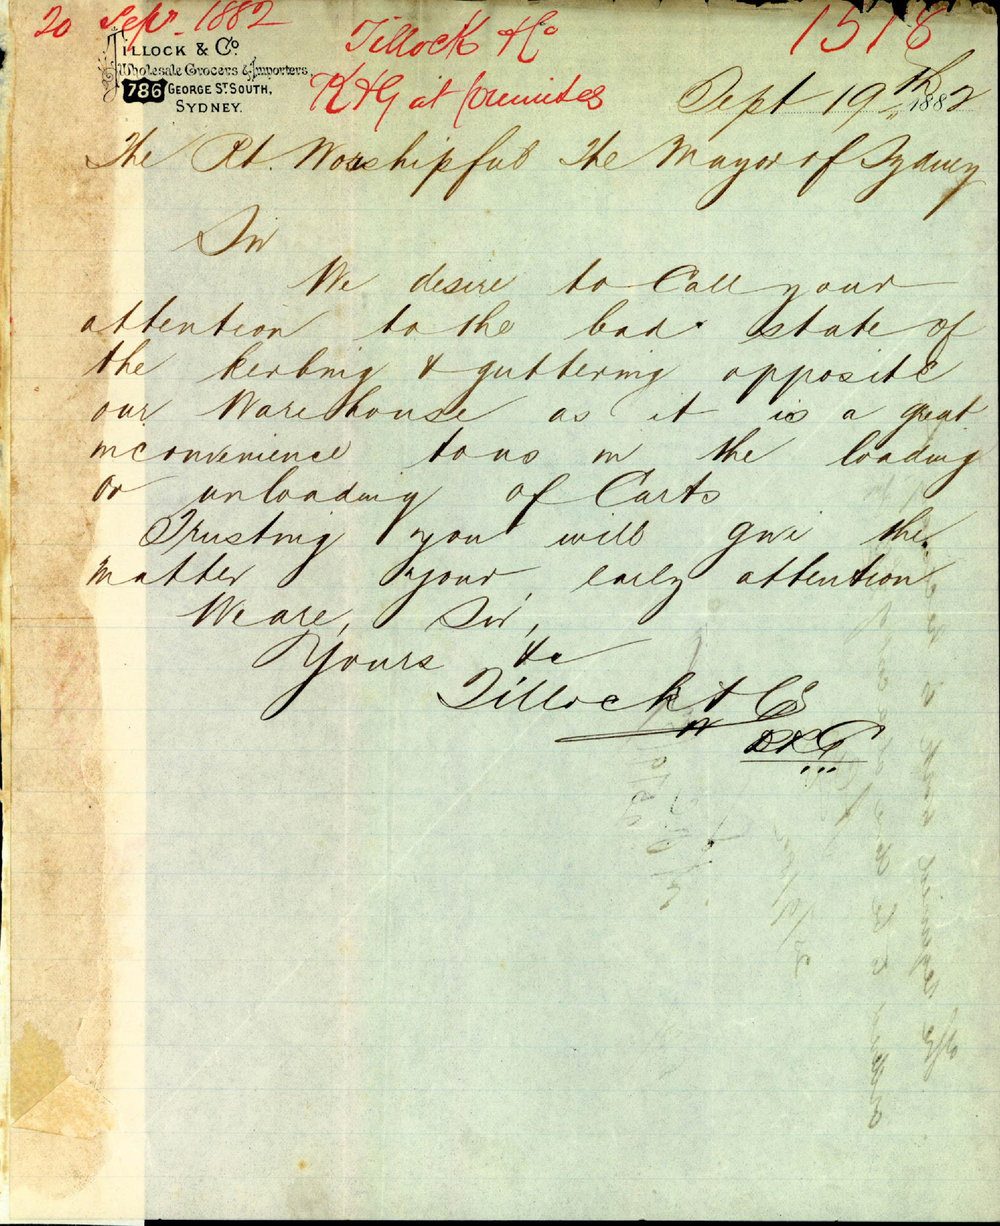 20 Sepr. 1882
Tillock & Co
1518
K & G at premises
TILLOCK & Co.
Wholesale Grocers & Importers,
786 GEORGE ST. SOUTH,
SYDNEY.
Sept 19th 1882
The Rt. Worshipful The Mayor of Sydney
Sir
We desire to Call your
attention to the bad state of
the kerbing & guttering opposite
our Warehouse as it is a great
inconvenience to us in the loading
or unloading of Carts
Trusting you will give the
matter your early attention
We are, Sir,
Yours &c
Tillock & Co